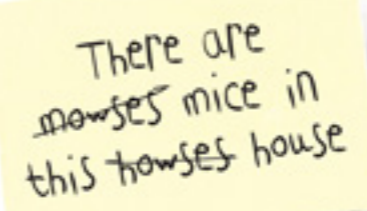 There are
mowses mice in
this howses house